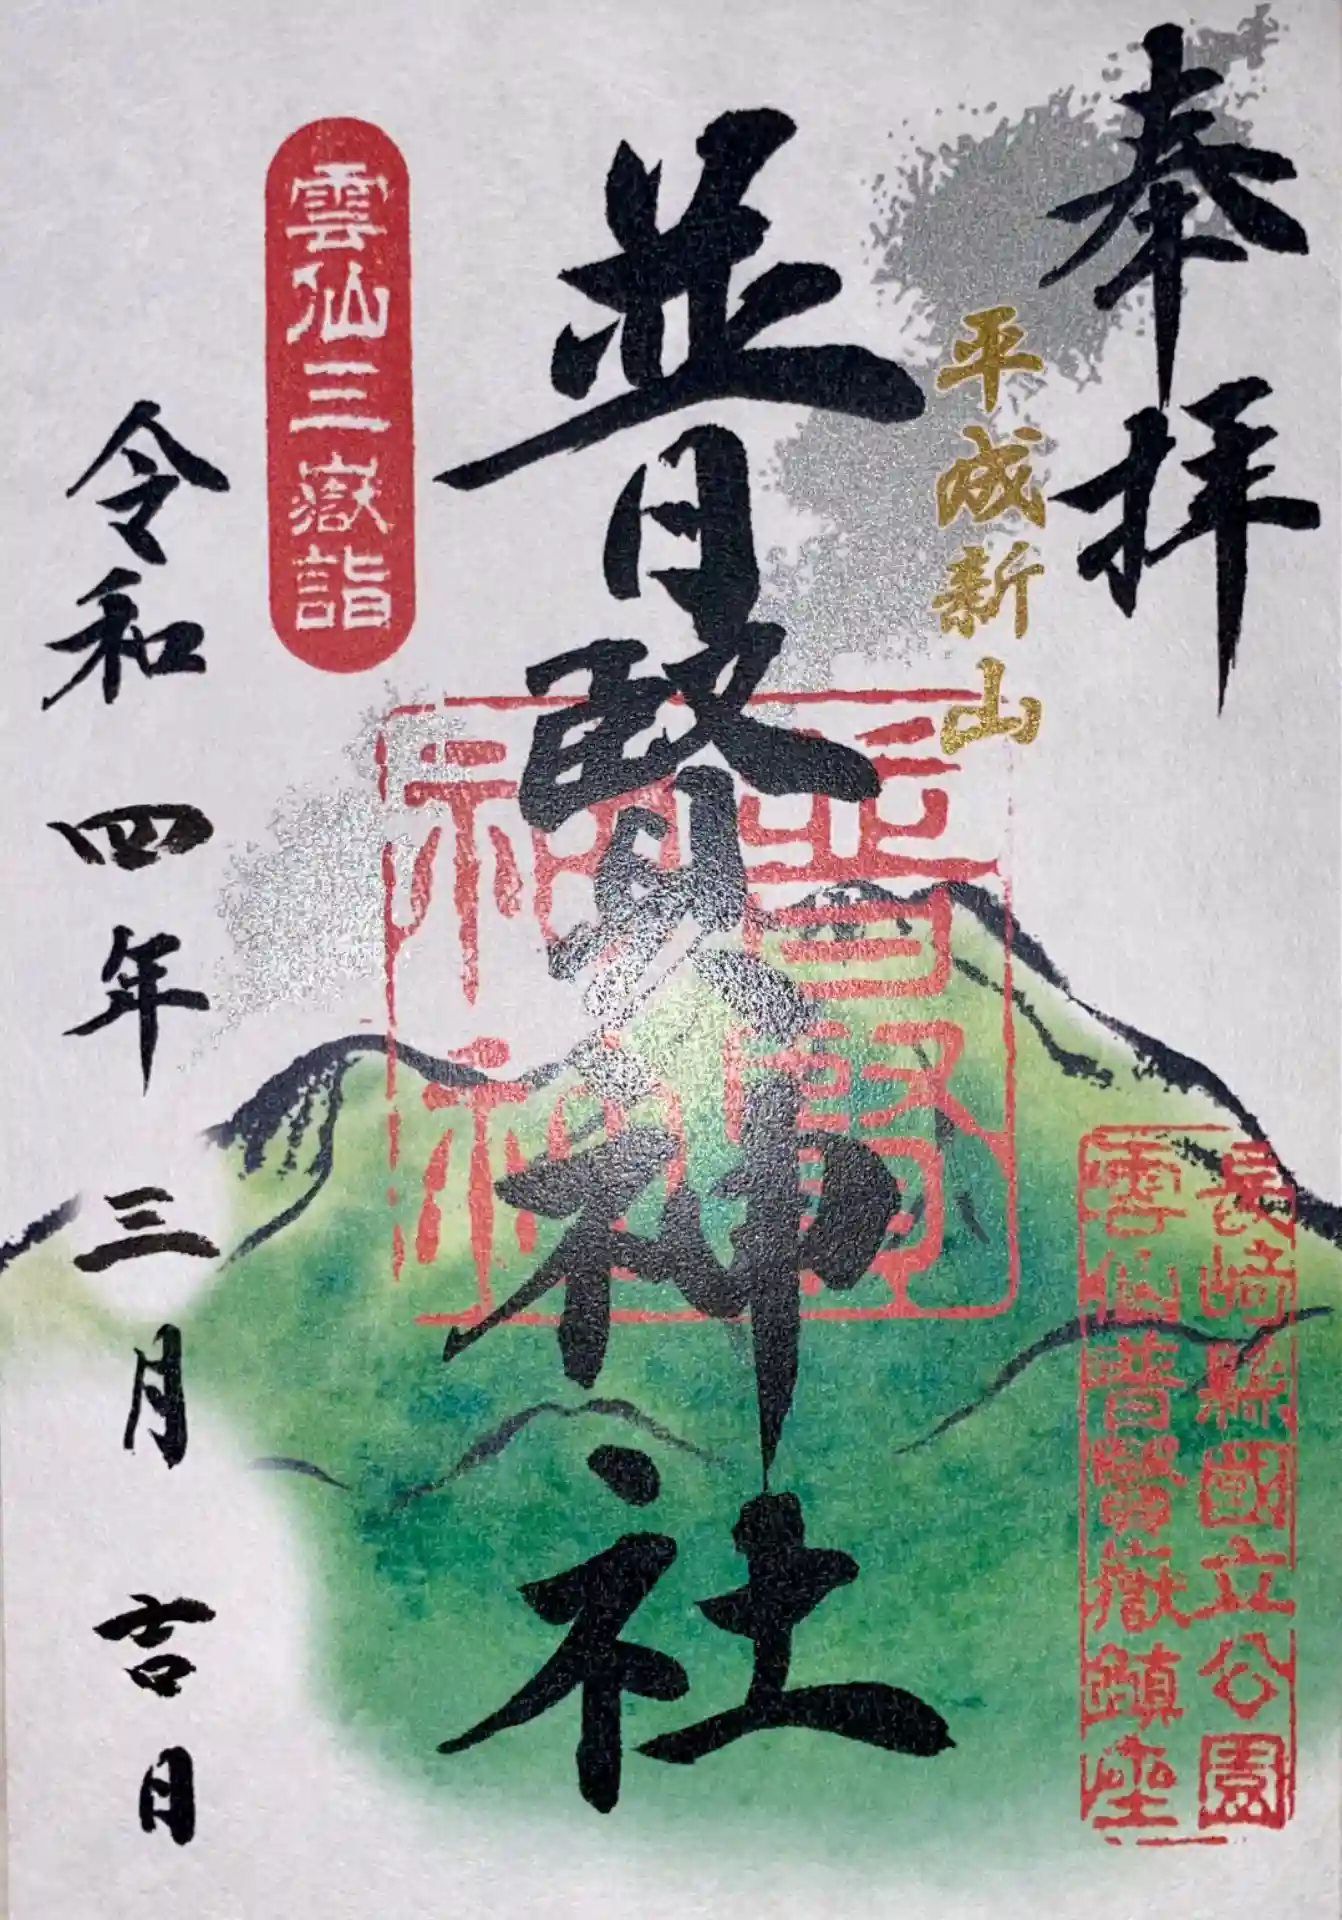 奉拝
平成新山
普賢神社
普賢
神社
長崎縣国立公園
雲仙普賢嶽鎮座
雲仙三嶽詣
令和四年三月吉日